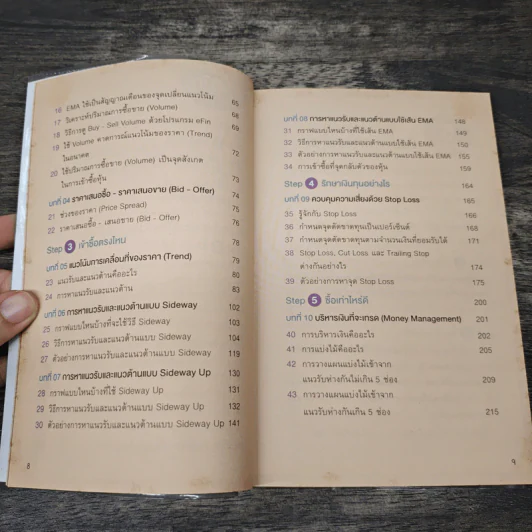 16 EMA ใช้เป็นสัญญาณเตือนของจุดเปลี่ยนแนวโน้ม 65
17 วิเคราะห์ปริมาณการซื้อขาย (Volume) 66
18 วิธีการดู Buy - Sell Volume ด้วยโปรแกรม eFin 69
19 ใช้ Volume คาดการณ์แนวโน้มของราคา (Trend)
ในอนาคต 72
20 ใช้ปริมาณการซื้อขาย (Volume) เป็นจุดสังเกต
ในการเข้าซื้อหุ้น 73
บทที่ 04 ราคาเสนอซื้อ - ราคาเสนอขาย (Bid - Offer) 74
21 ช่วงของราคา (Price Spread) 75
22 ราคาเสนอซื้อ - เสนอขาย (Bid - Offer) 76
Step 3 เข้าซื้อตรงไหน 78
บทที่ 05 แนวโน้มการเคลื่อนที่ของราคา (Trend) 79
23 แนวรับและแนวต้านคืออะไร 80
24 การหาแนวรับและแนวต้าน 83
บทที่ 06 การหาแนวรับและแนวต้านแบบ Sideway 102
25 กราฟแบบไหนที่จะใช้วิธี Sideway 103
26 วิธีการหาแนวรับและแนวต้านแบบ Sideway 104
27 ตัวอย่างการหาแนวรับและแนวต้านแบบ Sideway 119
บทที่ 07 การหาแนวรับและแนวต้านแบบ Sideway Up 130
28 กราฟแบบไหนที่ใช้ Sideway Up 131
29 วิธีการหาแนวรับและแนวต้านแบบ Sideway Up 132
30 ตัวอย่างการหาแนวรับและแนวต้านแบบ Sideway Up 141
8
บทที่ 08 การหาแนวรับและแนวต้านแบบใช้เส้น EMA 148
31 กราฟแบบไหนบ้างที่ใช้เส้น EMA 149
32 วิธีการหาแนวรับและแนวต้านแบบใช้เส้น EMA 150
33 ตัวอย่างการหาแนวรับและแนวต้านแบบใช้เส้น EMA 155
34 การเข้าซื้อที่จุดกลับตัวของหุ้น 159
Step 4 รักษาเงินทุนอย่างไร 164
บทที่ 09 ควบคุมความเสี่ยงด้วย Stop Loss 165
35 รู้จักกับ Stop Loss 166
36 กำหนดจุดตัดขาดทุนเป็นเปอร์เซ็นต์ 168
37 กำหนดจุดตัดขาดทุนตามจำนวนเงินที่ยอมรับได้ 171
38 Stop Loss, Cut Loss และ Trailing Stop
ต่างกันอย่างไร 174
39 ตัวอย่างการหาจุด Stop Loss 175
Step 5 ซื้อเท่าไหร่ดี 200
บทที่ 10 บริหารเงินที่จะเทรด (Money Management) 201
40 การบริหารเงินคืออะไร 202
41 การแบ่งไม้คืออะไร 205
42 การวางแผนแบ่งไม้เข้าจาก
แนวรับห่างกันไม่เกิน 5 ช่อง 209
43 การวางแผนแบ่งไม้เข้าจาก
แนวรับห่างกันเกิน 5 ช่อง 215
9